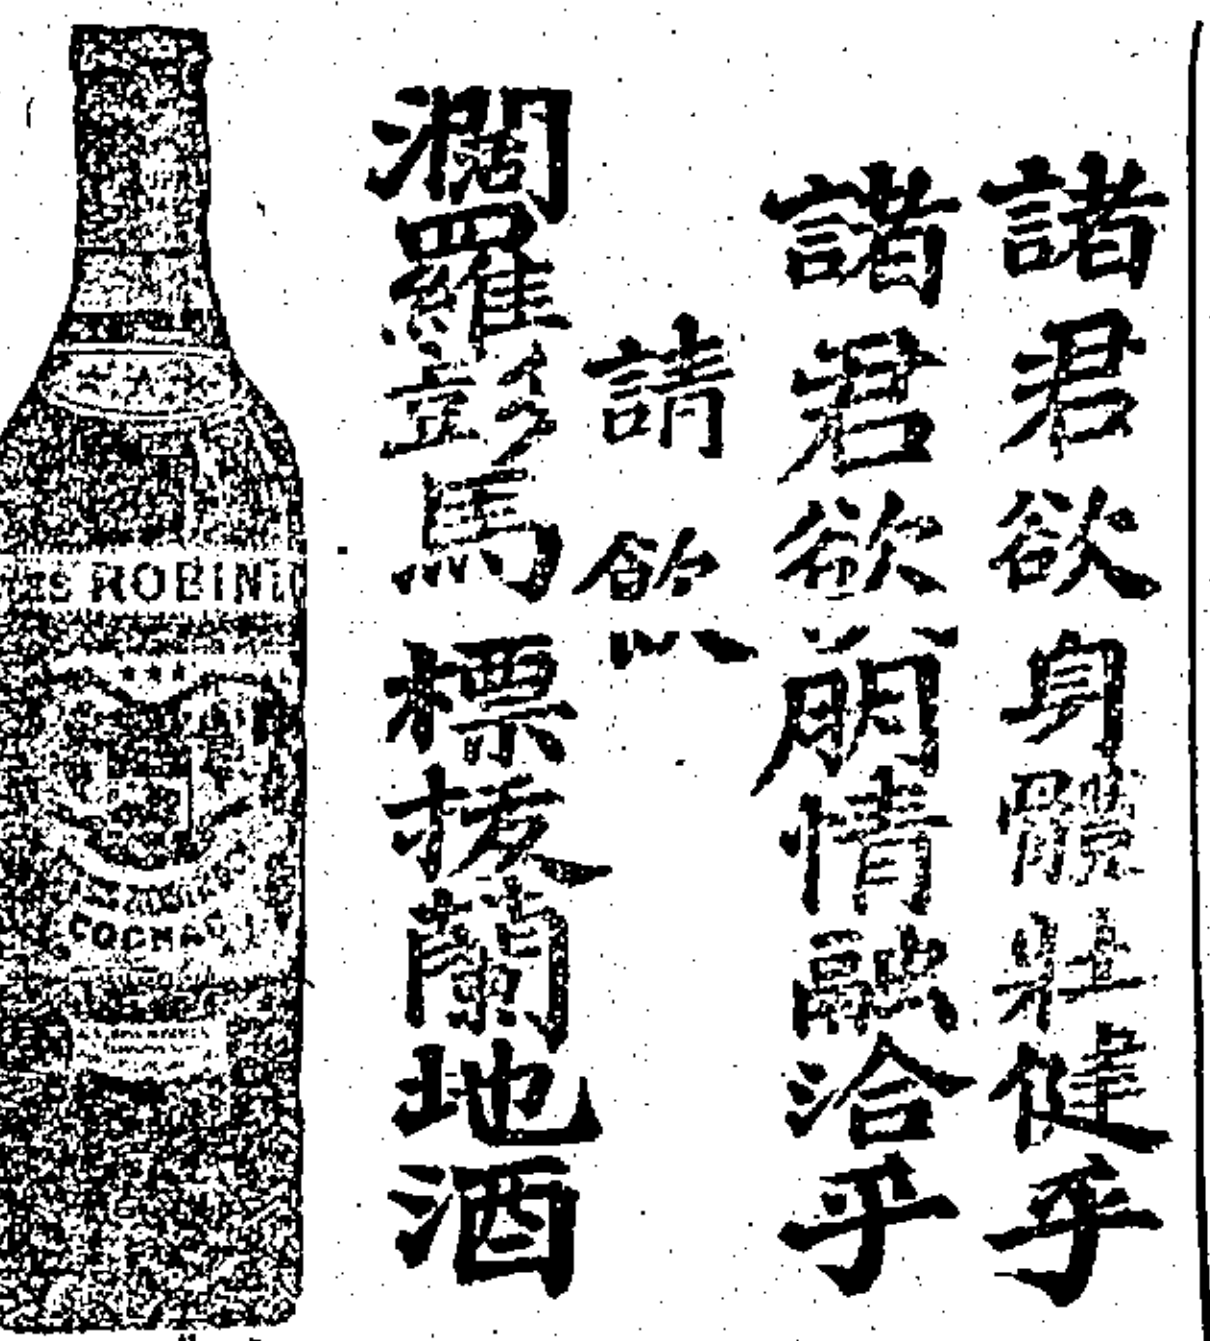 諸君欲身體壯健乎
諸君欲朋情融洽乎
請飲
濶羅彭馬標拔蘭地酒
ES ROBIN
COGNAC